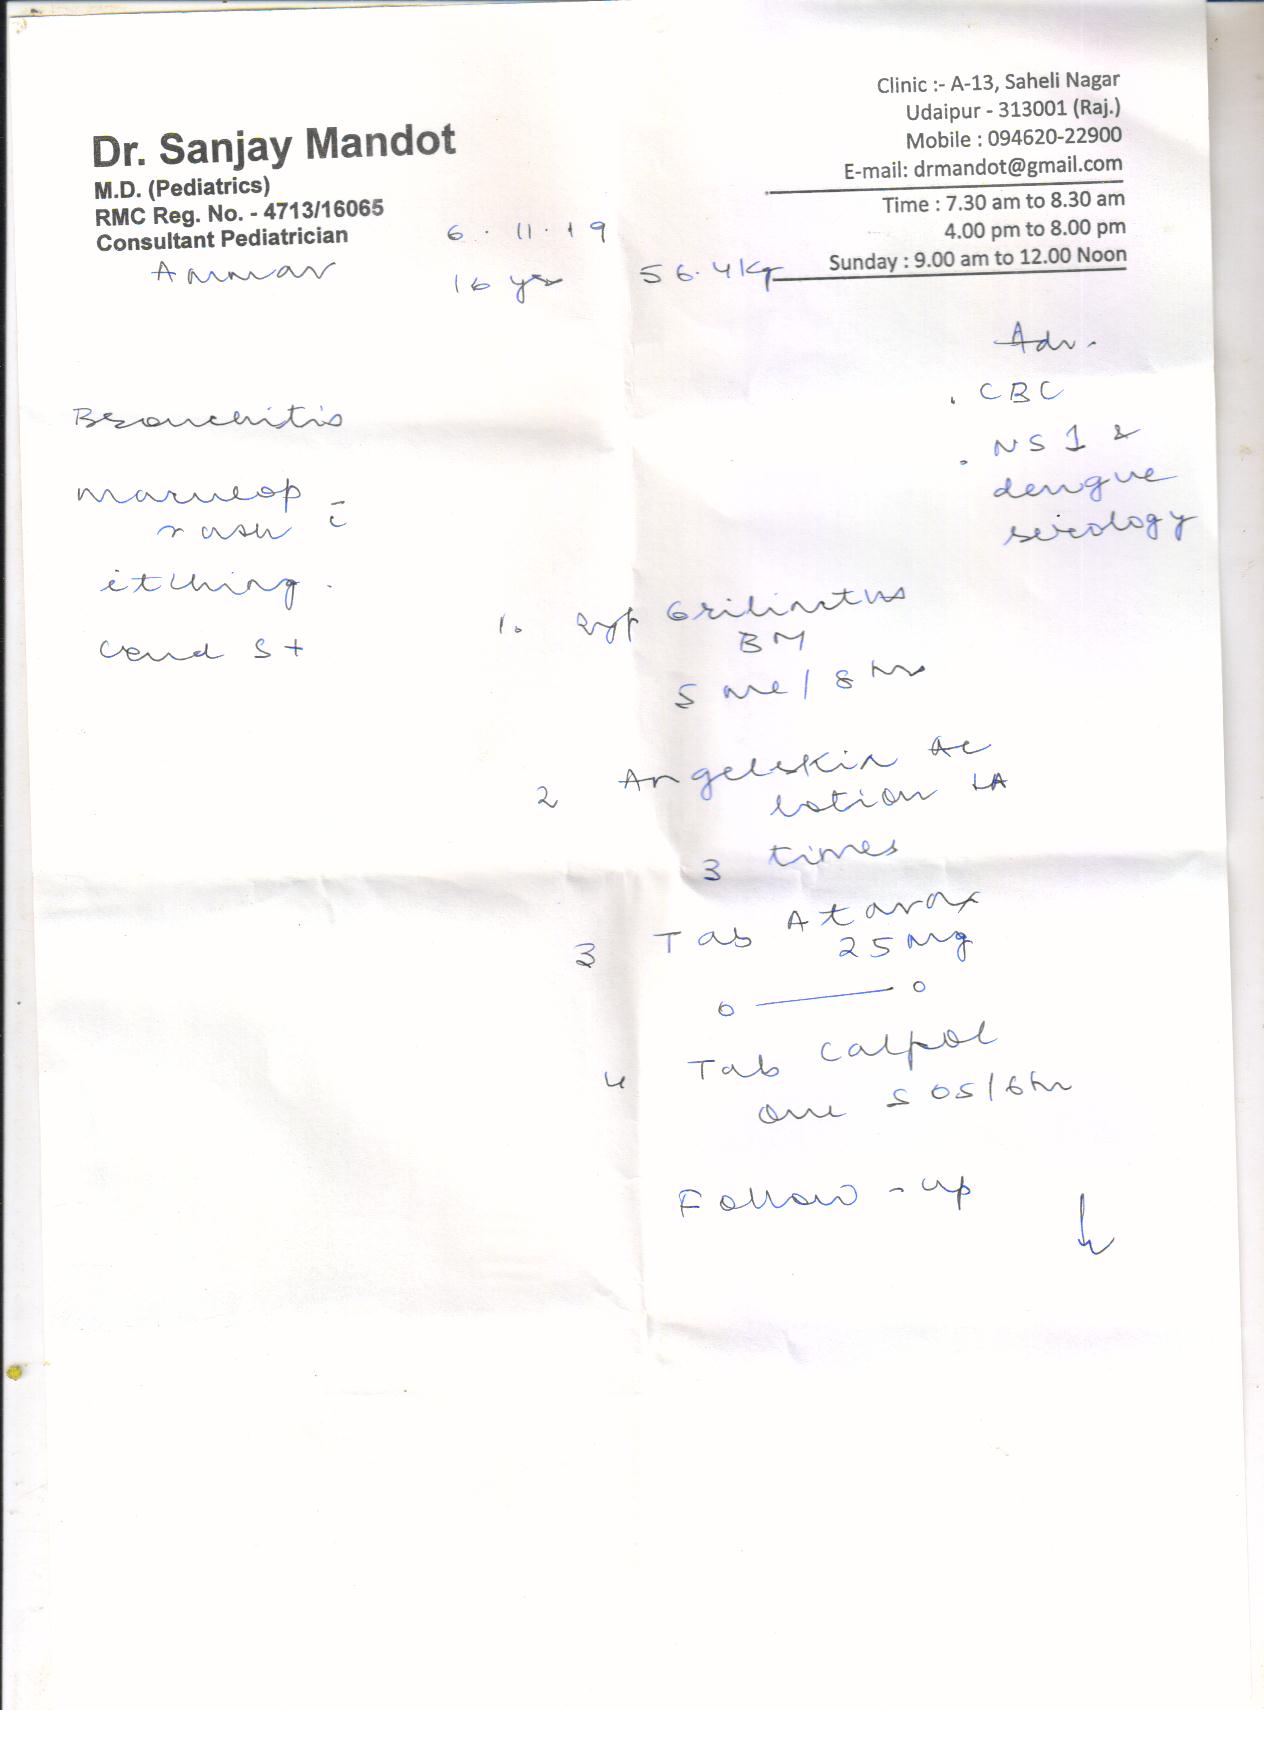 Dr. Sanjay Mandot
M.D. (Pediatrics)
RMC Reg. No. - 4713/16065
Consultant Pediatrician
Clinic :- A-13, Saheli Nagar
Udaipur - 313001 (Raj.)
Mobile : 094620-22900
E-mail: drmandot@gmail.com
Time : 7.30 am to 8.30 am
4.00 pm to 8.00 pm
Sunday : 9.00 am to 12.00 Noon
6.11.19
16 yrs 56.4 Kg
Adv.
. CBC
. NS1 &
dengue
serology
Bronchitis
rash c̄
itching.
S+
1. Syp Grilinctus
BM
5 ml / 8 hr
2 Angelskin AC
lotion LA
3 times
3 Tab Atarax
25 mg
o — o
4 Tab Calpol
one SOS/6hr
Follow-up